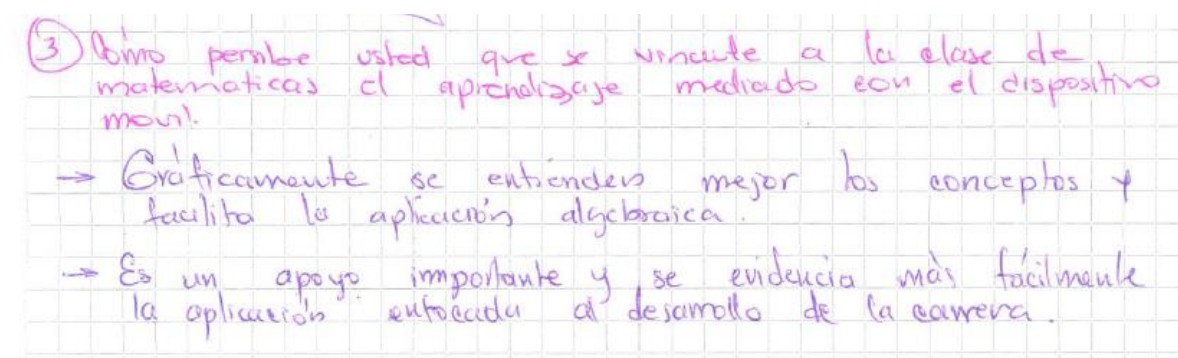 ③ Cómo percibe usted que se vincule a la clase de
matematicas el aprendizaje mediado con el dispositivo
movil.
→ Gráficamente se entienden mejor los conceptos y
facilita la aplicación algebraica.
→ Es un apoyo importante y se evidencia más fácilmente
la aplicación enfocada al desarrollo de la carrera.